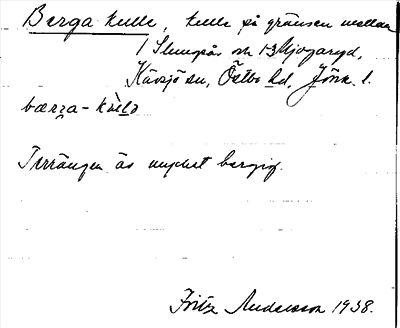 Berga kulle, kulle på gränsen mellan
1 Slumpån och 1-3 Mjogaryd,
Kävsjö sn, Östbo hd, Jönk. l.
bærga-kùlə
Terrängen är mycket bergig.
Fritz Andersson 1938.